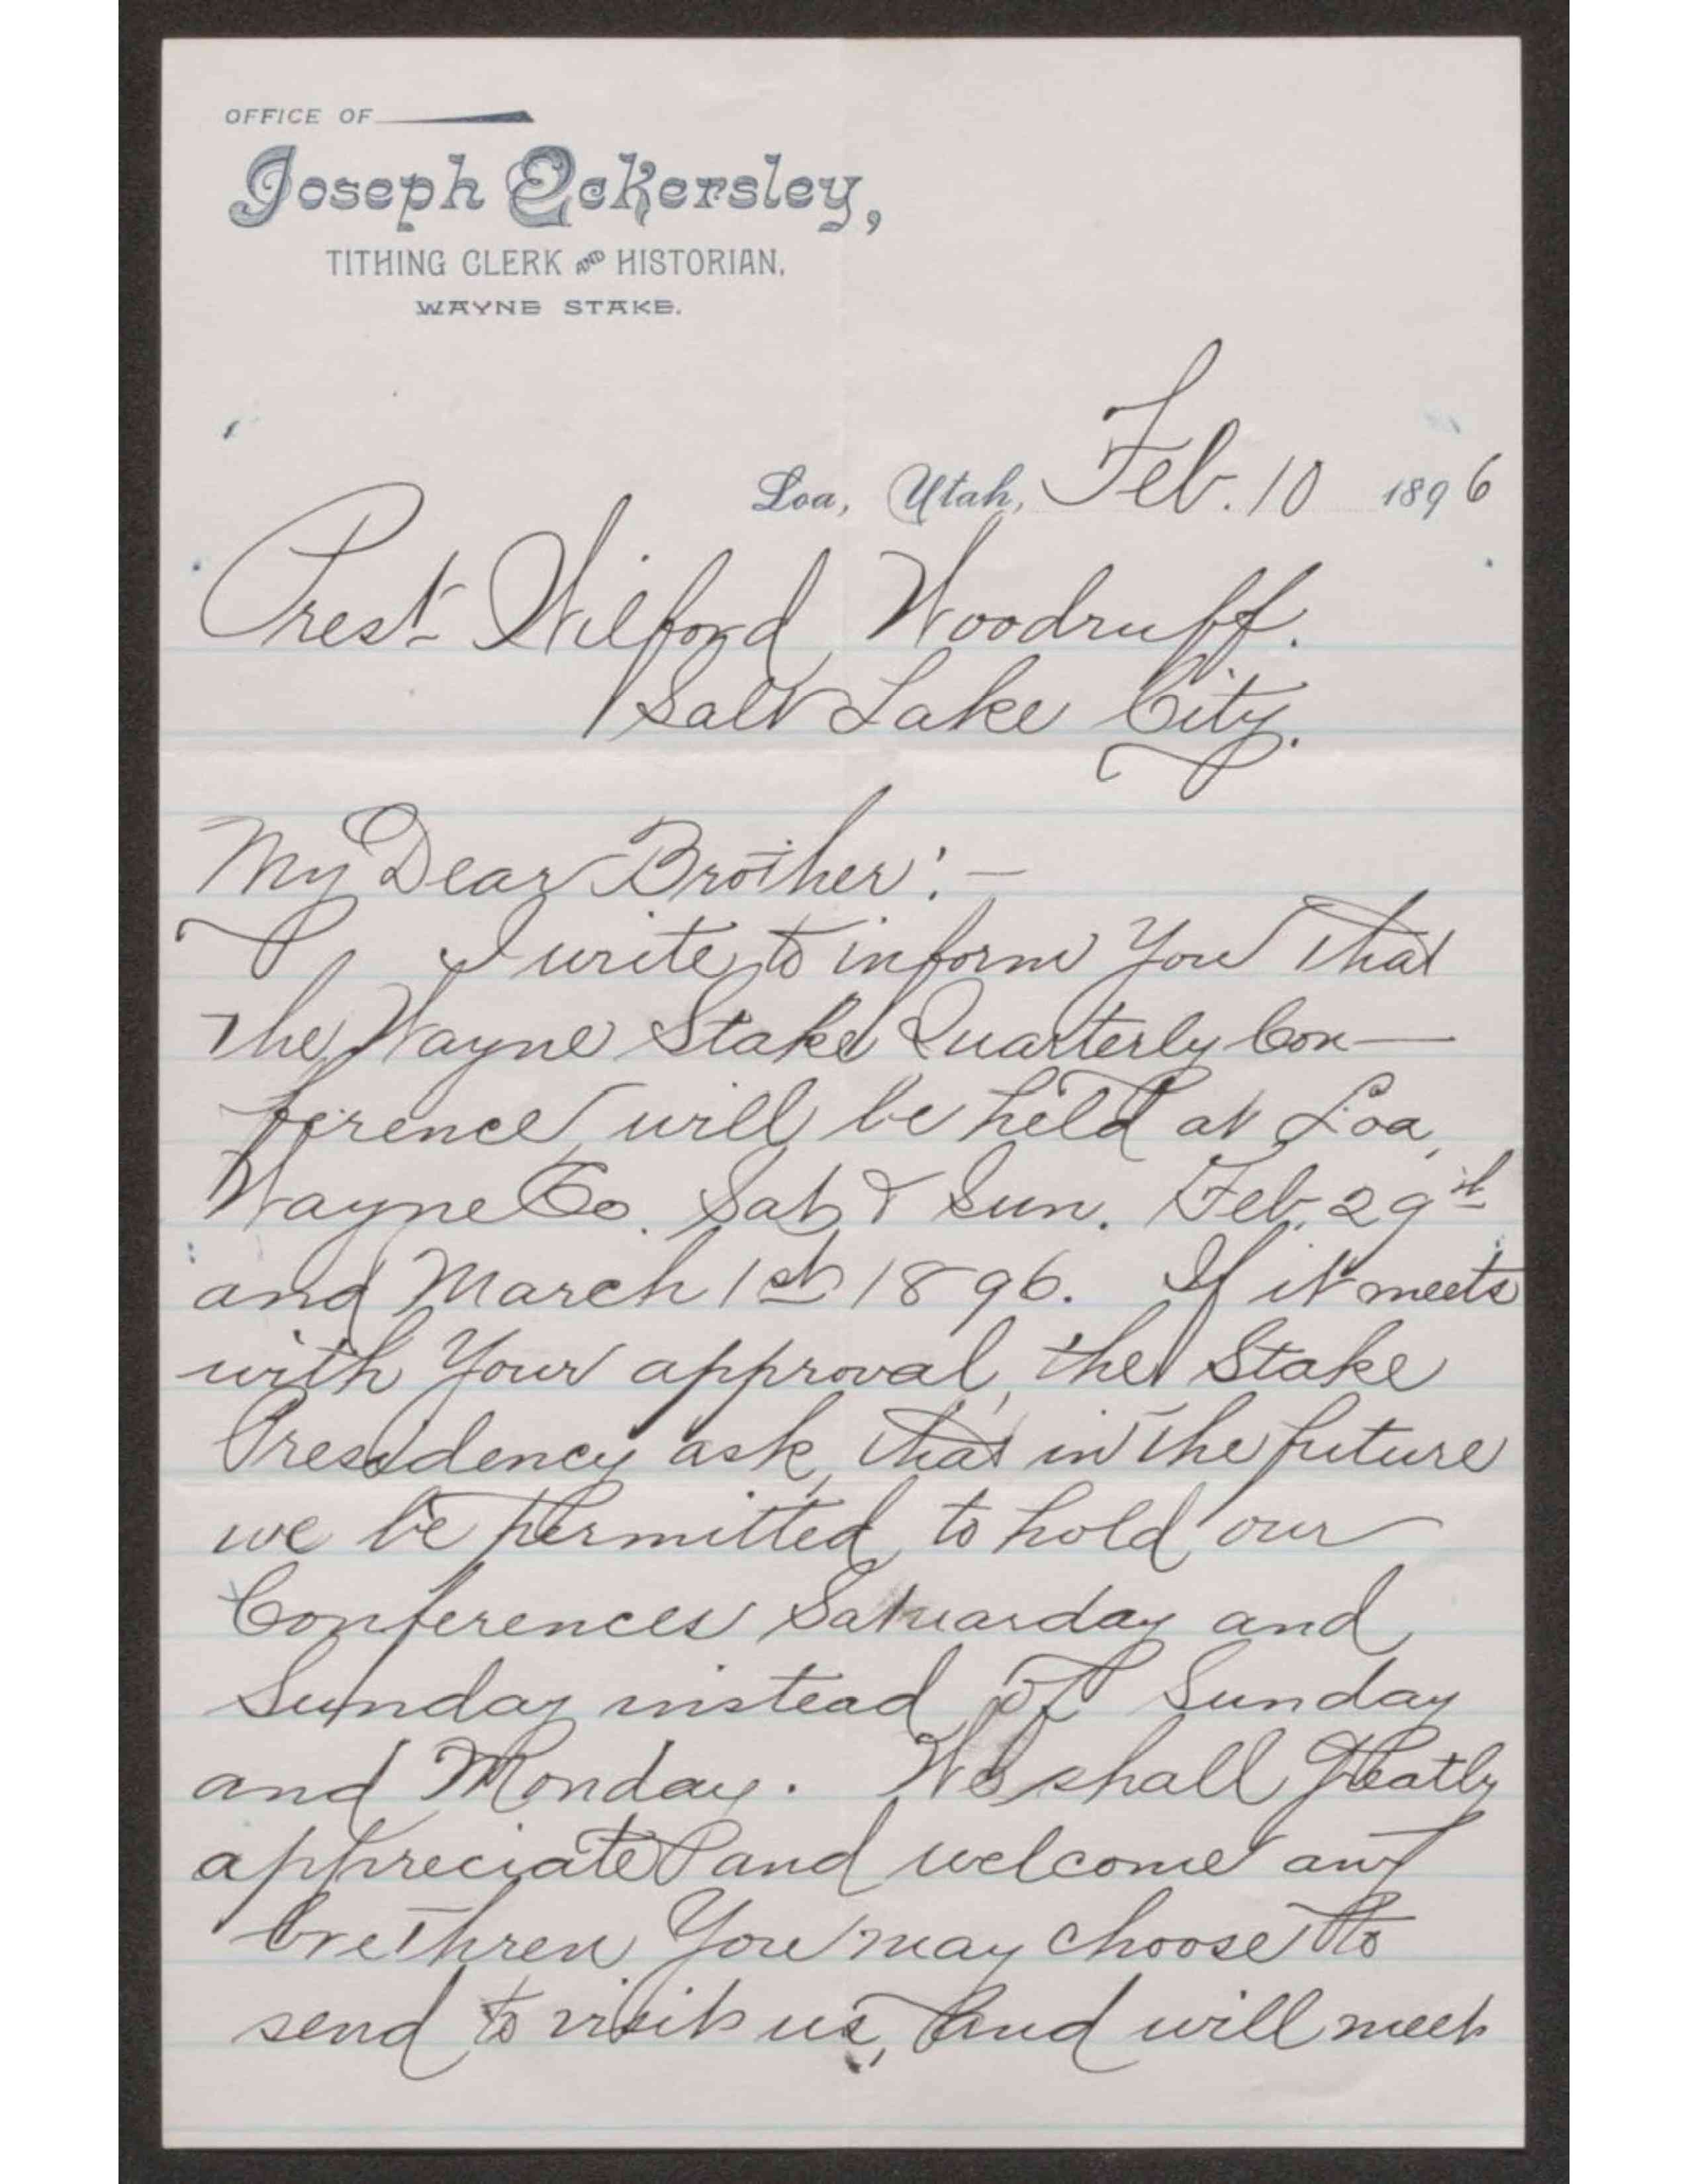 OFFICE OF
Joseph Eckersley,
TITHING CLERK AND HISTORIAN,
WAYNE STAKE.
Loa, Utah, Feb. 10 1896
Prest Wilford Woodruff.
Salt Lake City.
My Dear Brother:—
I write to inform You that
the Wayne Stake Quarterly Con—
ference will be held at Loa,
Wayne Co. Sat & Sun. Feb. 29th
and March 1st 1896. If it meets
with Your approval, the Stake
Presidency ask, that in the future
we be permitted to hold our
Conferences Satuarday and
Sunday instead of Sunday
and Monday. We shall Greatly
appreciate and welcome any
brethren You may choose to
send to visit us, and will meet